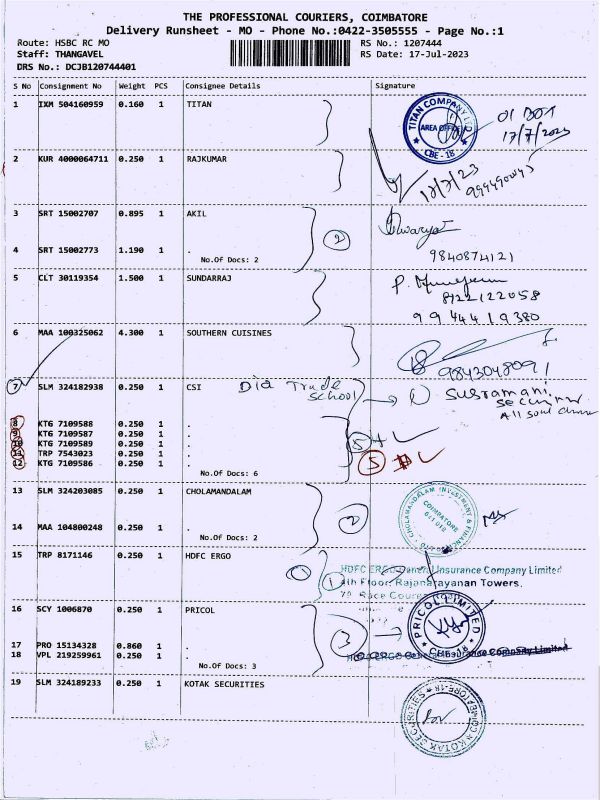 THE PROFESSIONAL COURIERS, COIMBATORE
Delivery Runsheet - MO - Phone No.:0422-3505555 - Page No.:1
Route: HSBC RC MO RS No.: 1207444
Staff: THANGAVEL RS Date: 17-Jul-2023
DRS No.: DCJB120744401
S No Consignment No Weight PCS Consignee Details Signature
1 IXM 504160959 0.160 1 TITAN
TITAN COMPANY LTD AREA OFFICE CBE - 18
17/7/2023
2 KUR 4000064711 0.250 1 RAJKUMAR
17/7/23
3 SRT 15002707 0.895 1 AKIL
2
4 SRT 15002773 1.190 1 .
No.Of Docs: 2
9840874121
5 CLT 30119354 1.500 1 SUNDARRAJ
8122122058
9944419380
6 MAA 100325062 4.300 1 SOUTHERN CUISINES
9843048091
7 SLM 324182938 0.250 1 CSI
School 1
8 KTG 7109588 0.250 1 .
9 KTG 7109587 0.250 1 .
10 KTG 7109589 0.250 1 .
11 TRP 7543023 0.250 1 .
12 KTG 7109586 0.250 1 .
No.Of Docs: 6
5
5
13 SLM 324203085 0.250 1 CHOLAMANDALAM
CHOLAMANDALAM INVESTMENT & FINANCE
COIMBATORE
641 018
2
14 MAA 104800248 0.250 1 .
No.Of Docs: 2
15 TRP 8171146 0.250 1 HDFC ERGO
1
1
HDFC ERGO General Insurance Company Limited
4th Floor, Rajanarayanan Towers,
16 SCY 1006870 0.250 1 PRICOL
PRICOL LIMITED CBE-18
3
17 PRO 15134328 0.860 1 .
18 VPL 219259961 0.250 1 .
No.Of Docs: 3
19 SLM 324189233 0.250 1 KOTAK SECURITIES
KOTAK SECURITIES COIMBATORE-18